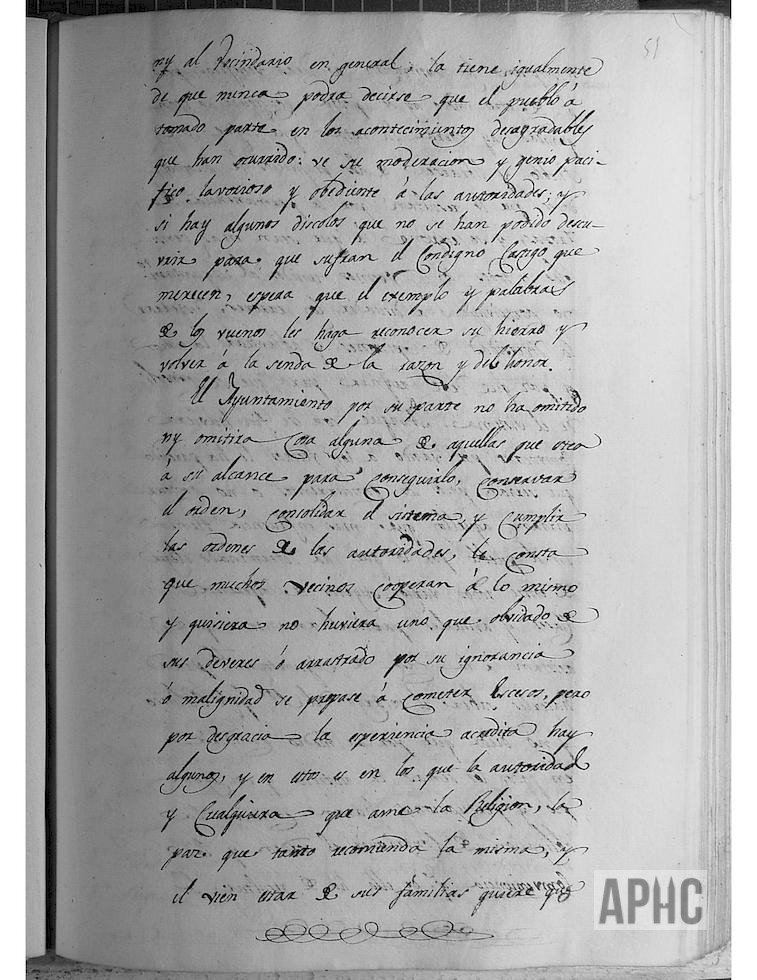 51
ny al Vecindario en general, la tiene igualmente
de que nunca podra decirse que el pueblo á
tomado parte en los acontecimientos desagradables
que han ocurrido: ve su moderacion y genio paci-
fico lavorioso y obediente á las autoridades; y
si hay algunos discolos que no se han podido descu-
vrir para que sufran el Condigno Castigo que
merecen, espera que el exemplo y palabras
de los vuenos les haga reconocer su hierro y
volver á la senda de la razon y del honor.
El Ayuntamiento por su parte no ha omitido
ny omitira Cosa alguna de aquellas que crea
á su alcance para conseguirlo, Conservar
el orden, Consolidar el sistema, y Cumplir
las ordenes de las autoridades, le Consta
que muchos vecinos Cooperan á lo mismo
y quisiera no huviera uno que obidado de
sus deveres ó arrastrado por su ignorancia
ó malignidad se propase á Cometer Escesos, pero
por desgracia la esperiencia acredita hay
algunos, y en estos es en los que la autoridad
y Cualquiera que ame la Religion, la
paz que tanto recomienda la misma, y
el vien estar de sus familias quiere que
APHC